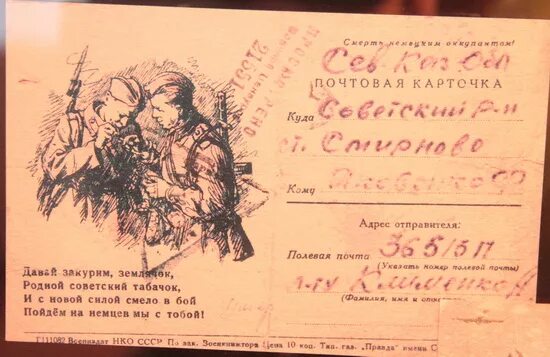 Смерть немецким оккупантам!
Сев Каз Обл
ПОЧТОВАЯ КАРТОЧКА
Куда Советский р-н
ст. Смирново
Кому
Адрес отправителя:
Полевая почта 36515П
(Указать номер полевой почты)
(Фамилия, имя и
ПРОСМОТРЕНО
Военной Цензурой
Давай закурим, землячок,
Родной советский табачок,
И с новой силой смело в бой
Пойдём на немцев мы с тобой!
Г111082 Воениздат НКО СССР По зак. Военкниготорга Цена 10 коп. Тип. газ. „Правда" имени